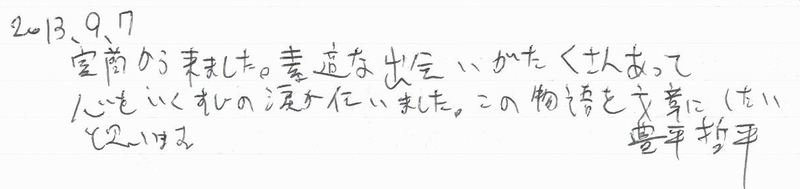 2013、9、7
室蘭から来ました。素适な出会いがたくさんあって
心をいくすじの涙が伝いました。この物語を文章にしたい
と思います
豊平哲平